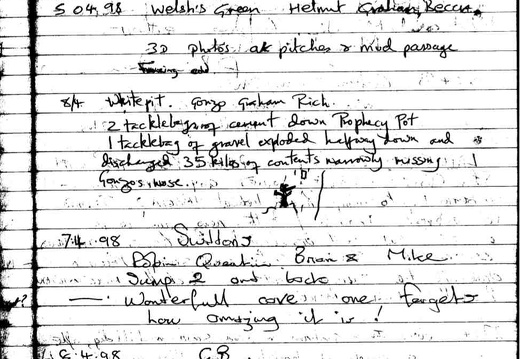 5.04.98 Welsh's Green Helmut Graham, Becca.
3D photos at pitches & mud passage
8/4 Whitepit. Gonzo Graham Rich.
2 tacklebags of cement down Prophecy Pot
1 tacklebag of gravel exploded halfway down and
discharged 35 kilos of contents narrowly missing
Gonzos nose.
7.4.98 Swildons
Quentin Brian & Mike
Sump 2 and back
— Wonderfull cave one forgets
how amazing it is!
8.4.98 G.B.